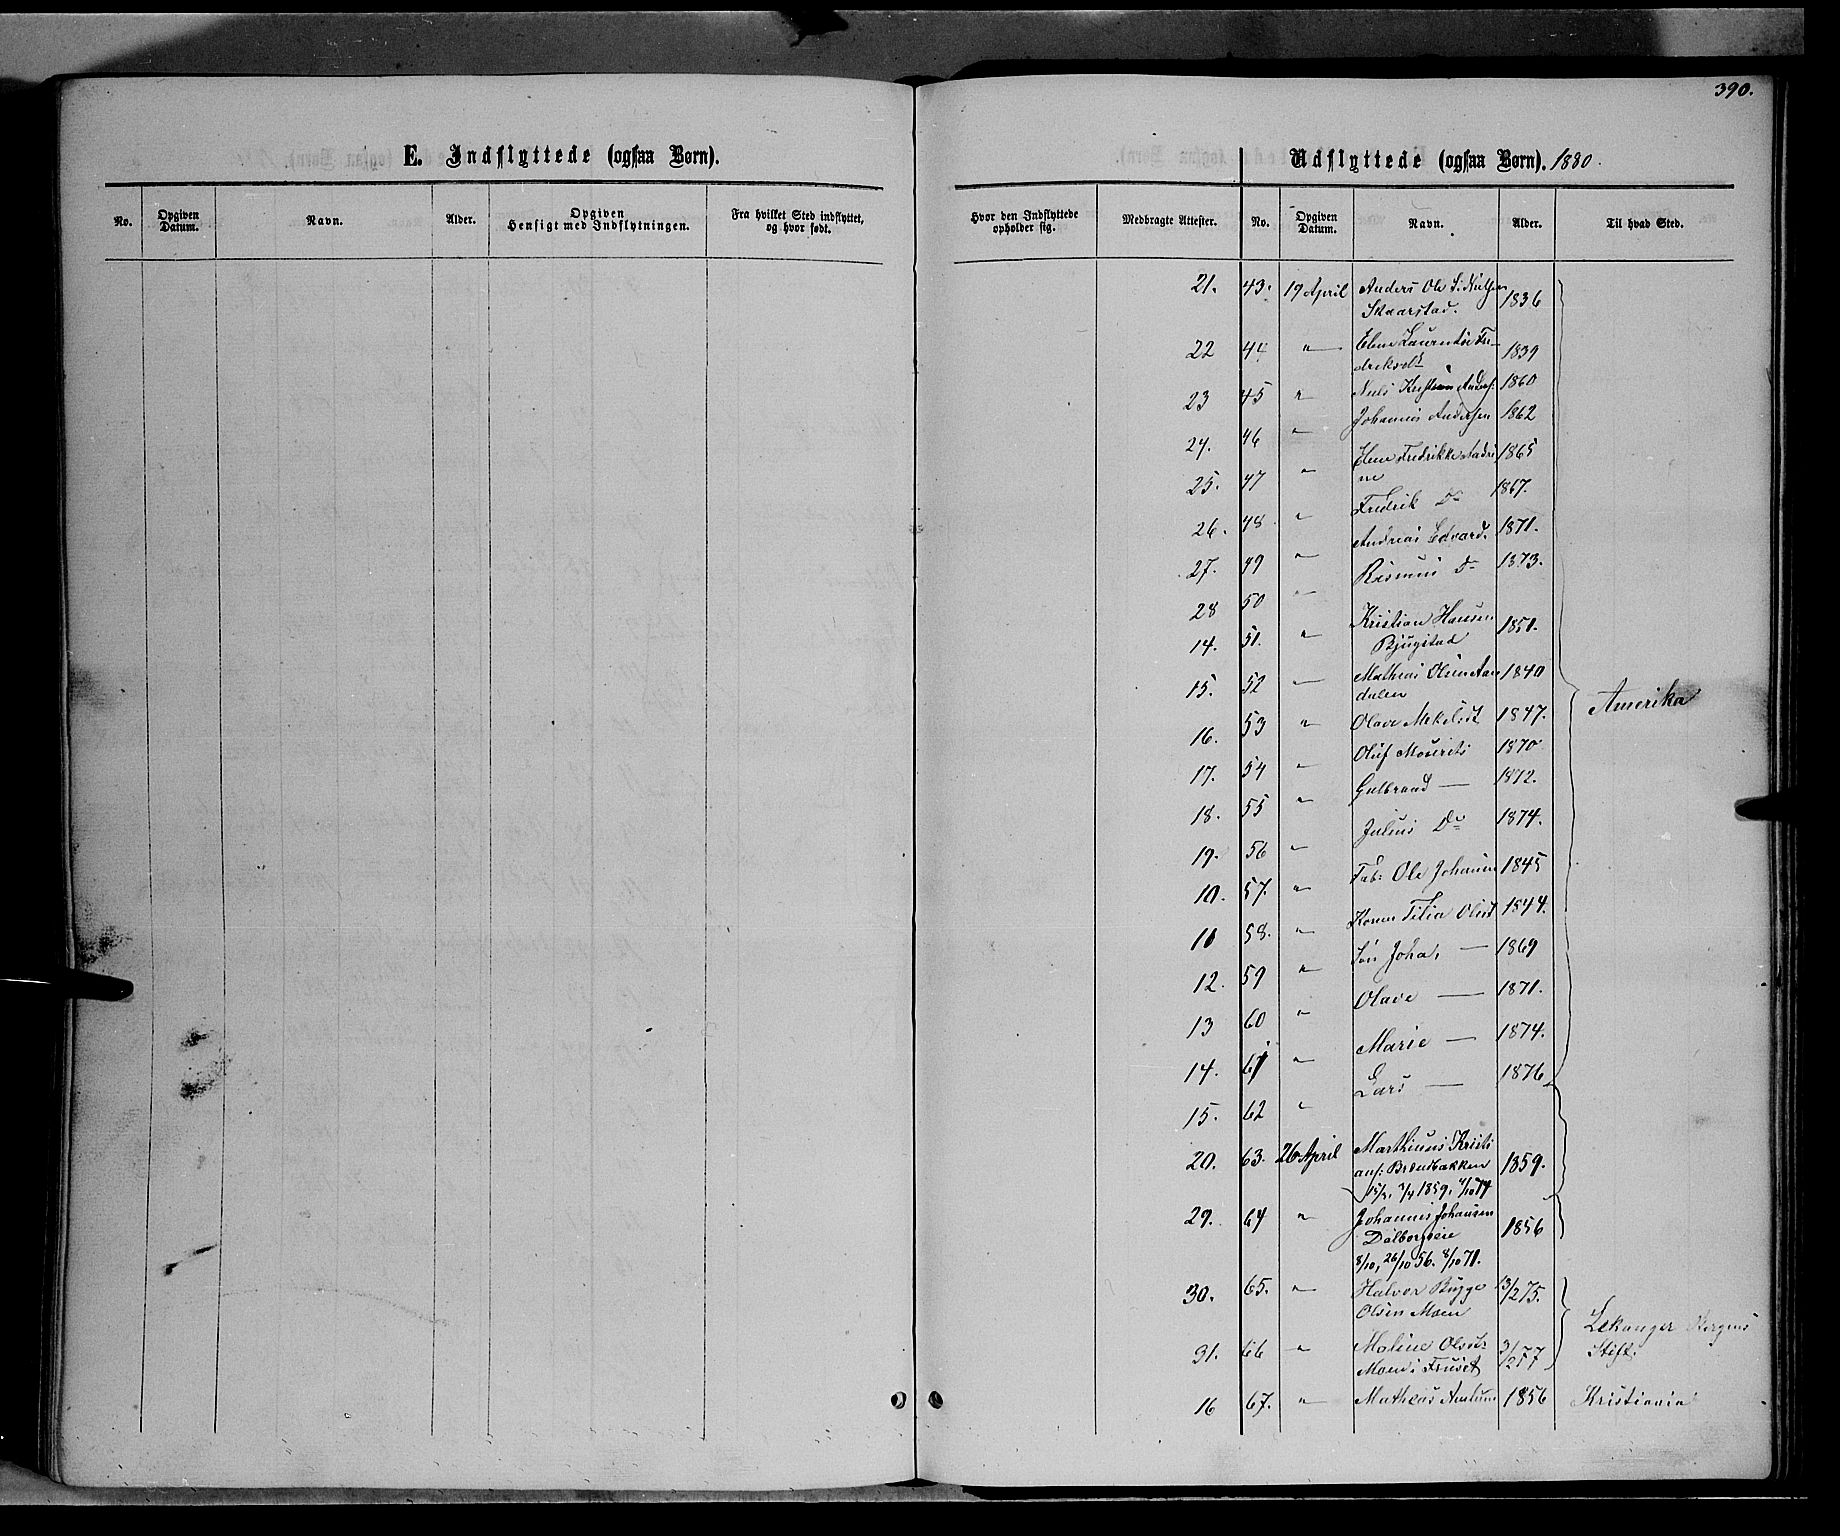 390.
E. Indflyttede (ogsaa Børn).
Udflyttede (ogsaa Børn). 1880.
No. Opgiven Datum. Navn. Alder. Opgiven Hensigt med Indflytningen. Fra hvilket Sted indflyttet, og hvor født.
Hvor den Indflyttede opholder sig. Medbragte Attester. No. Opgiven Datum. Navn. Alder. Til hvad Sted.
21. 43. 19 April Anders Ole S. 1836
Skaarstad.
22 44 " Elene Laurentse Fre- 1839
driksdt
23 45 " Niels Kristian Anders: 1860
Johannes Andersen 1862
24. 46 "
Elene Fredrikke Andri 1865
25. 47 " ne
Fredrik Do 1867.
26. 48 " Andreas Edvard. 1871.
27. 49 " Rasmus Do 1873.
28 50 "
Kristian Hansen 1851.
14. 51. " Bjugstad
15. 52 " Mathias Olsen Aan 1840
dalen
16. 53 " Olave Mekelsdt 1847.
Amerika
Oluf Mourits 1870
17. 54 "
Gulbrand — 1872.
18. 55 "
Julius Do 1874.
19. 56 "
Fab: Ole Johansen 1845
10. 57. "
Konen Titia Olsdt 1844.
11 58. "
Søn Joha, — 1869
12. 59 "
Olave — 1871.
13 60 "
Marie — 1874.
14. 61 "
Lars — 1876
15. 62 "
20. 63. 26 April Marthinus Kristi 1859.
ans: Brændbakken
15/2, 3/4 1859, 4/10 74
29. 64 " Johannes Johansen 1856
Dalborgseie
8/10, 26/10 56. 8/10 71.
30. 65. " Halvor Bugge 13/2 75.
Olsen Moen
Lekanger Bergens
31. 66 " Maline Olsdt 3/2 77
Stift.
Moen i Fruset
16 67. " Matheas Amlund 1856 Kristiania